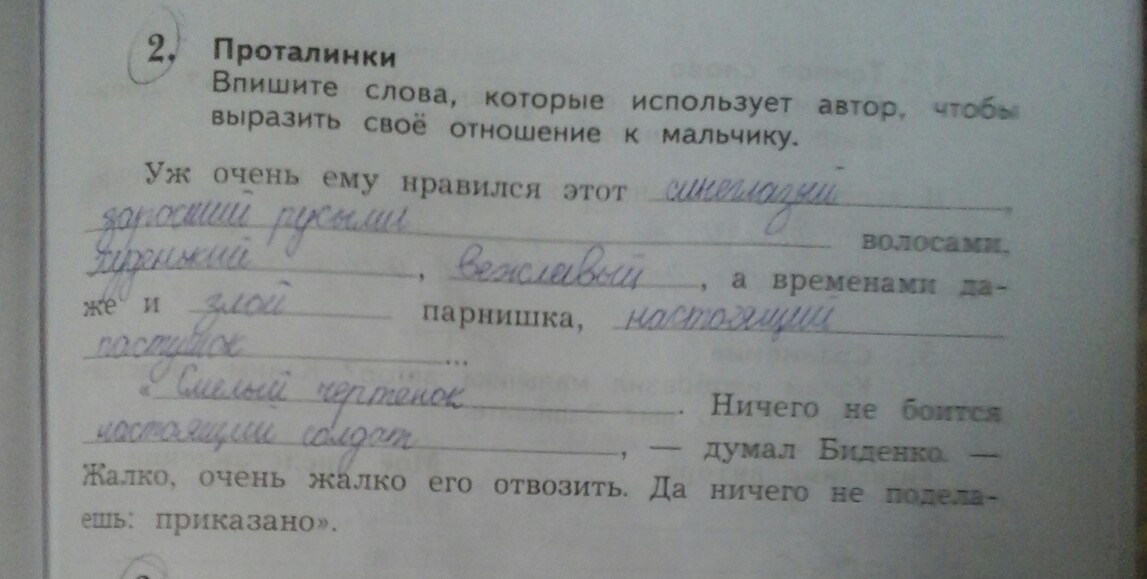 2. Проталинки
Впишите слова, которые использует автор, чтобы
выразить своё отношение к мальчику.
Уж очень ему нравился этот синеглазый,
заросший русыми волосами,
худенький, вежливый, а временами да-
же и злой парнишка, настоящий
пастушок...
«Смелый чертёнок. Ничего не боится
настоящий солдат, — думал Биденко. —
Жалко, очень жалко его отвозить. Да ничего не подела-
ешь: приказано».